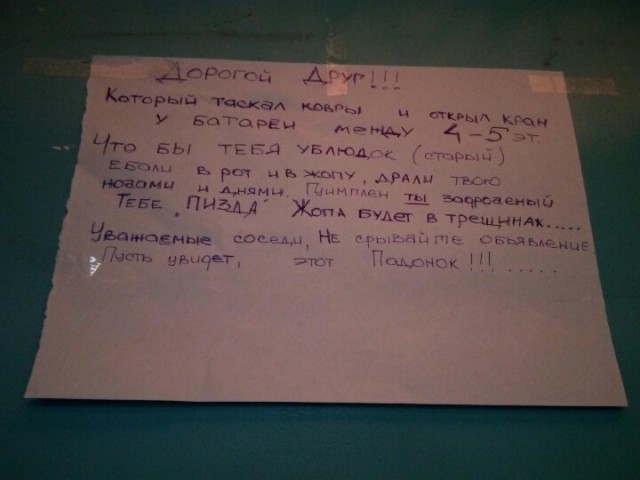 Дорогой Друг!!!
Который таскал ковры и открыл кран
у батареи между 4-5 эт
Что бы тебя ублюдок (старый)
ебали в рот и в жопу, драли твою
ногами и днями. Пимплен ты задроченый
Тебе "ПИЗДА" Жопа будет в трещинах.....
Уважаемые соседи, не срывайте объявление
Пусть увидет, этот Падонок!!! .....